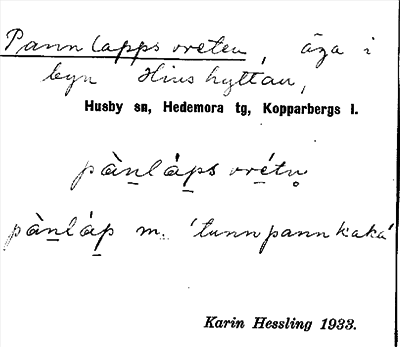 Pannlappsvreten, äga i
byn Hinshyttan,
Husby sn, Hedemora tg, Kopparbergs l.
pànláps vrétn̥
pànláp m. 'tunn pannkaka'
Karin Hessling 1933.